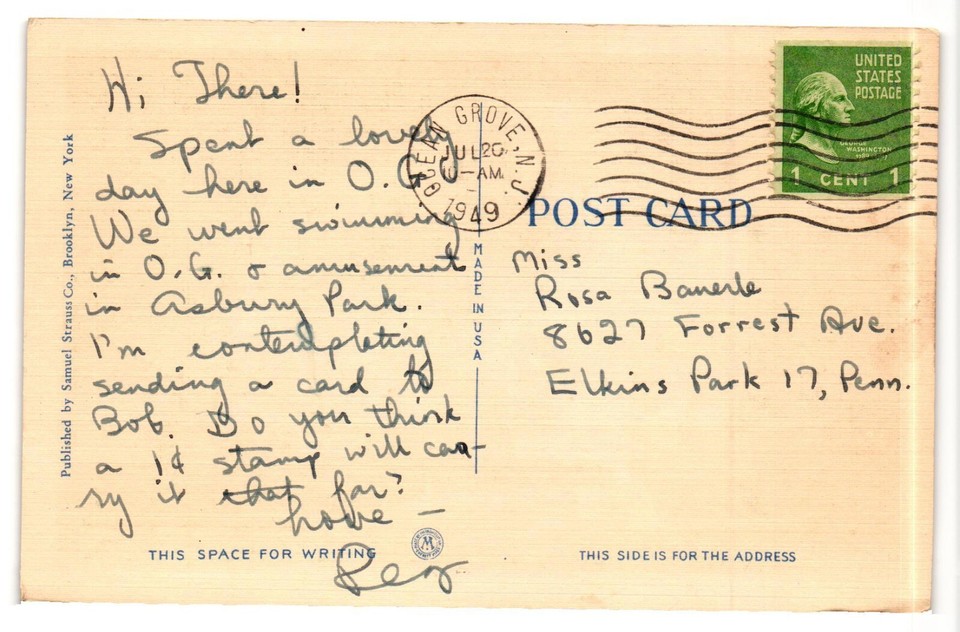 Hi There!
Spent a lovely
day here in O.G.
We went swimming
in O.G. & amusement
in Asbury Park.
I'm contemplating
sending a card to
Bob. Do you think
a 1¢ stamp will car-
ry it that far?
Love -
Published by Samuel Strauss Co., Brooklyn, New York
THIS SPACE FOR WRITING
MADE IN USA
OCEAN GROVE, N.J.
JUL 20
10-AM
1949
UNITED
STATES
POSTAGE
GEORGE
WASHINGTON
1 CENT 1
POST CARD
Miss
Rosa Bauerle
8627 Forrest Ave.
Elkins Park 17, Penn.
THIS SIDE IS FOR THE ADDRESS